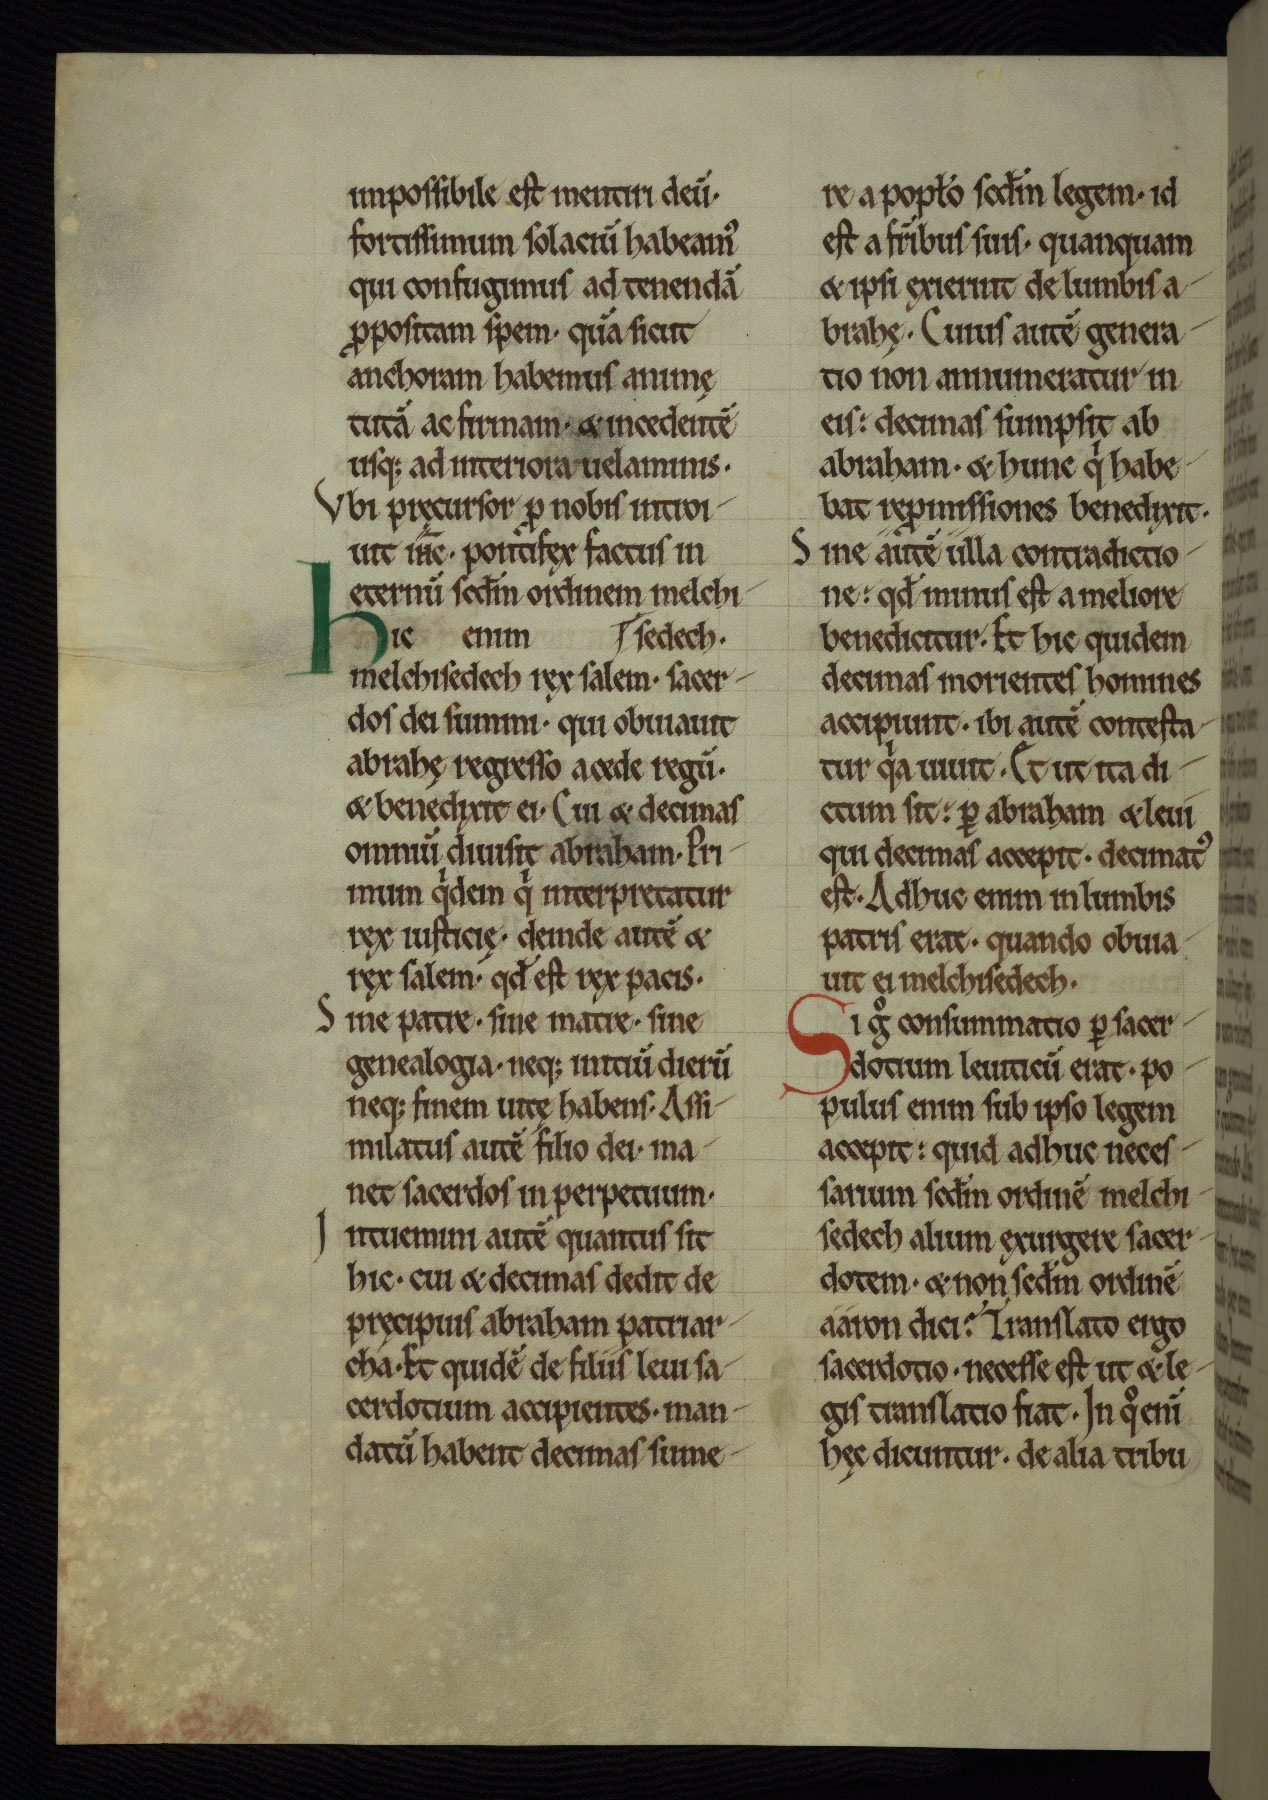 impossibile est mentiri deū·
fortissimum solaciū habeamꝰ
qui confugimus ad tenendā
ꝓpositam spem· quā sicut
anchoram habemus animę
tutā ac firmam· & incedentē
usq; ad interiora uelaminis·
Vbi pręcursor ꝓ nobis introi-
uit ih̄c· pontifex factus in
eternū scd̄m ordinem melchi-
hic enim sedech·
melchisedech rex salem· sacer-
dos dei summi· qui obuiauit
abrahę regresso a cede regū·
& benedixit ei· Cui & decimas
omniū diuisit abraham· Pri-
mum qͥdem qͥ interpretatur
rex iusticię· deinde autē &
rex salem· qd̄ est rex pacis·
Sine patre· sine matre· sine
genealogia· neq; initiū dierū
neq; finem uitę habens· Assi-
milatus autē filio dei· ma-
net sacerdos in perpetuum·
Intuemini autē quantus sit
hic· cui & decimas dedit de
pręcipuis abraham patriar-
cha· Et quidē de filiis leui sa-
cerdotium accipientes· man-
datū habent decimas sume-
re a popƚo scd̄m legem· id
est a fr̄ibus suis· quanquam
& ipsi exierunt de lumbis a-
brahę· Cuius autē genera-
tio non annumeratur in
eis: decimas sumpsit ab
abraham· & hunc qͥ habe-
bat repꝓmissiones benedixit·
Sine autē ulla contradictio-
ne: qd̄ minus est a meliore
benedicitur· Et hic quidem
decimas morientes homines
accipiunt· ibi autē contesta-
tur qͥa uiuit· Et ut ita di-
ctum sit: ꝑ abraham & leui
qui decimas accepit· decimatꝰ
est· Adhuc enim in lumbis
patris erat· quando obuia-
uit ei melchisedech·
Si gͦ consummatio ꝑ sacer-
dotium leuiticū erat· po-
pulus enim sub ipso legem
accepit: quid adhuc neces-
sarium scd̄m ordinē melchi-
sedech alium exurgere sacer-
dotem· & non scd̄m ordinē
aaron dici? Translato ergo
sacerdotio· necesse est ut & le-
gis translatio fiat· In qͦ enī
hęc dicuntur· de alia tribu